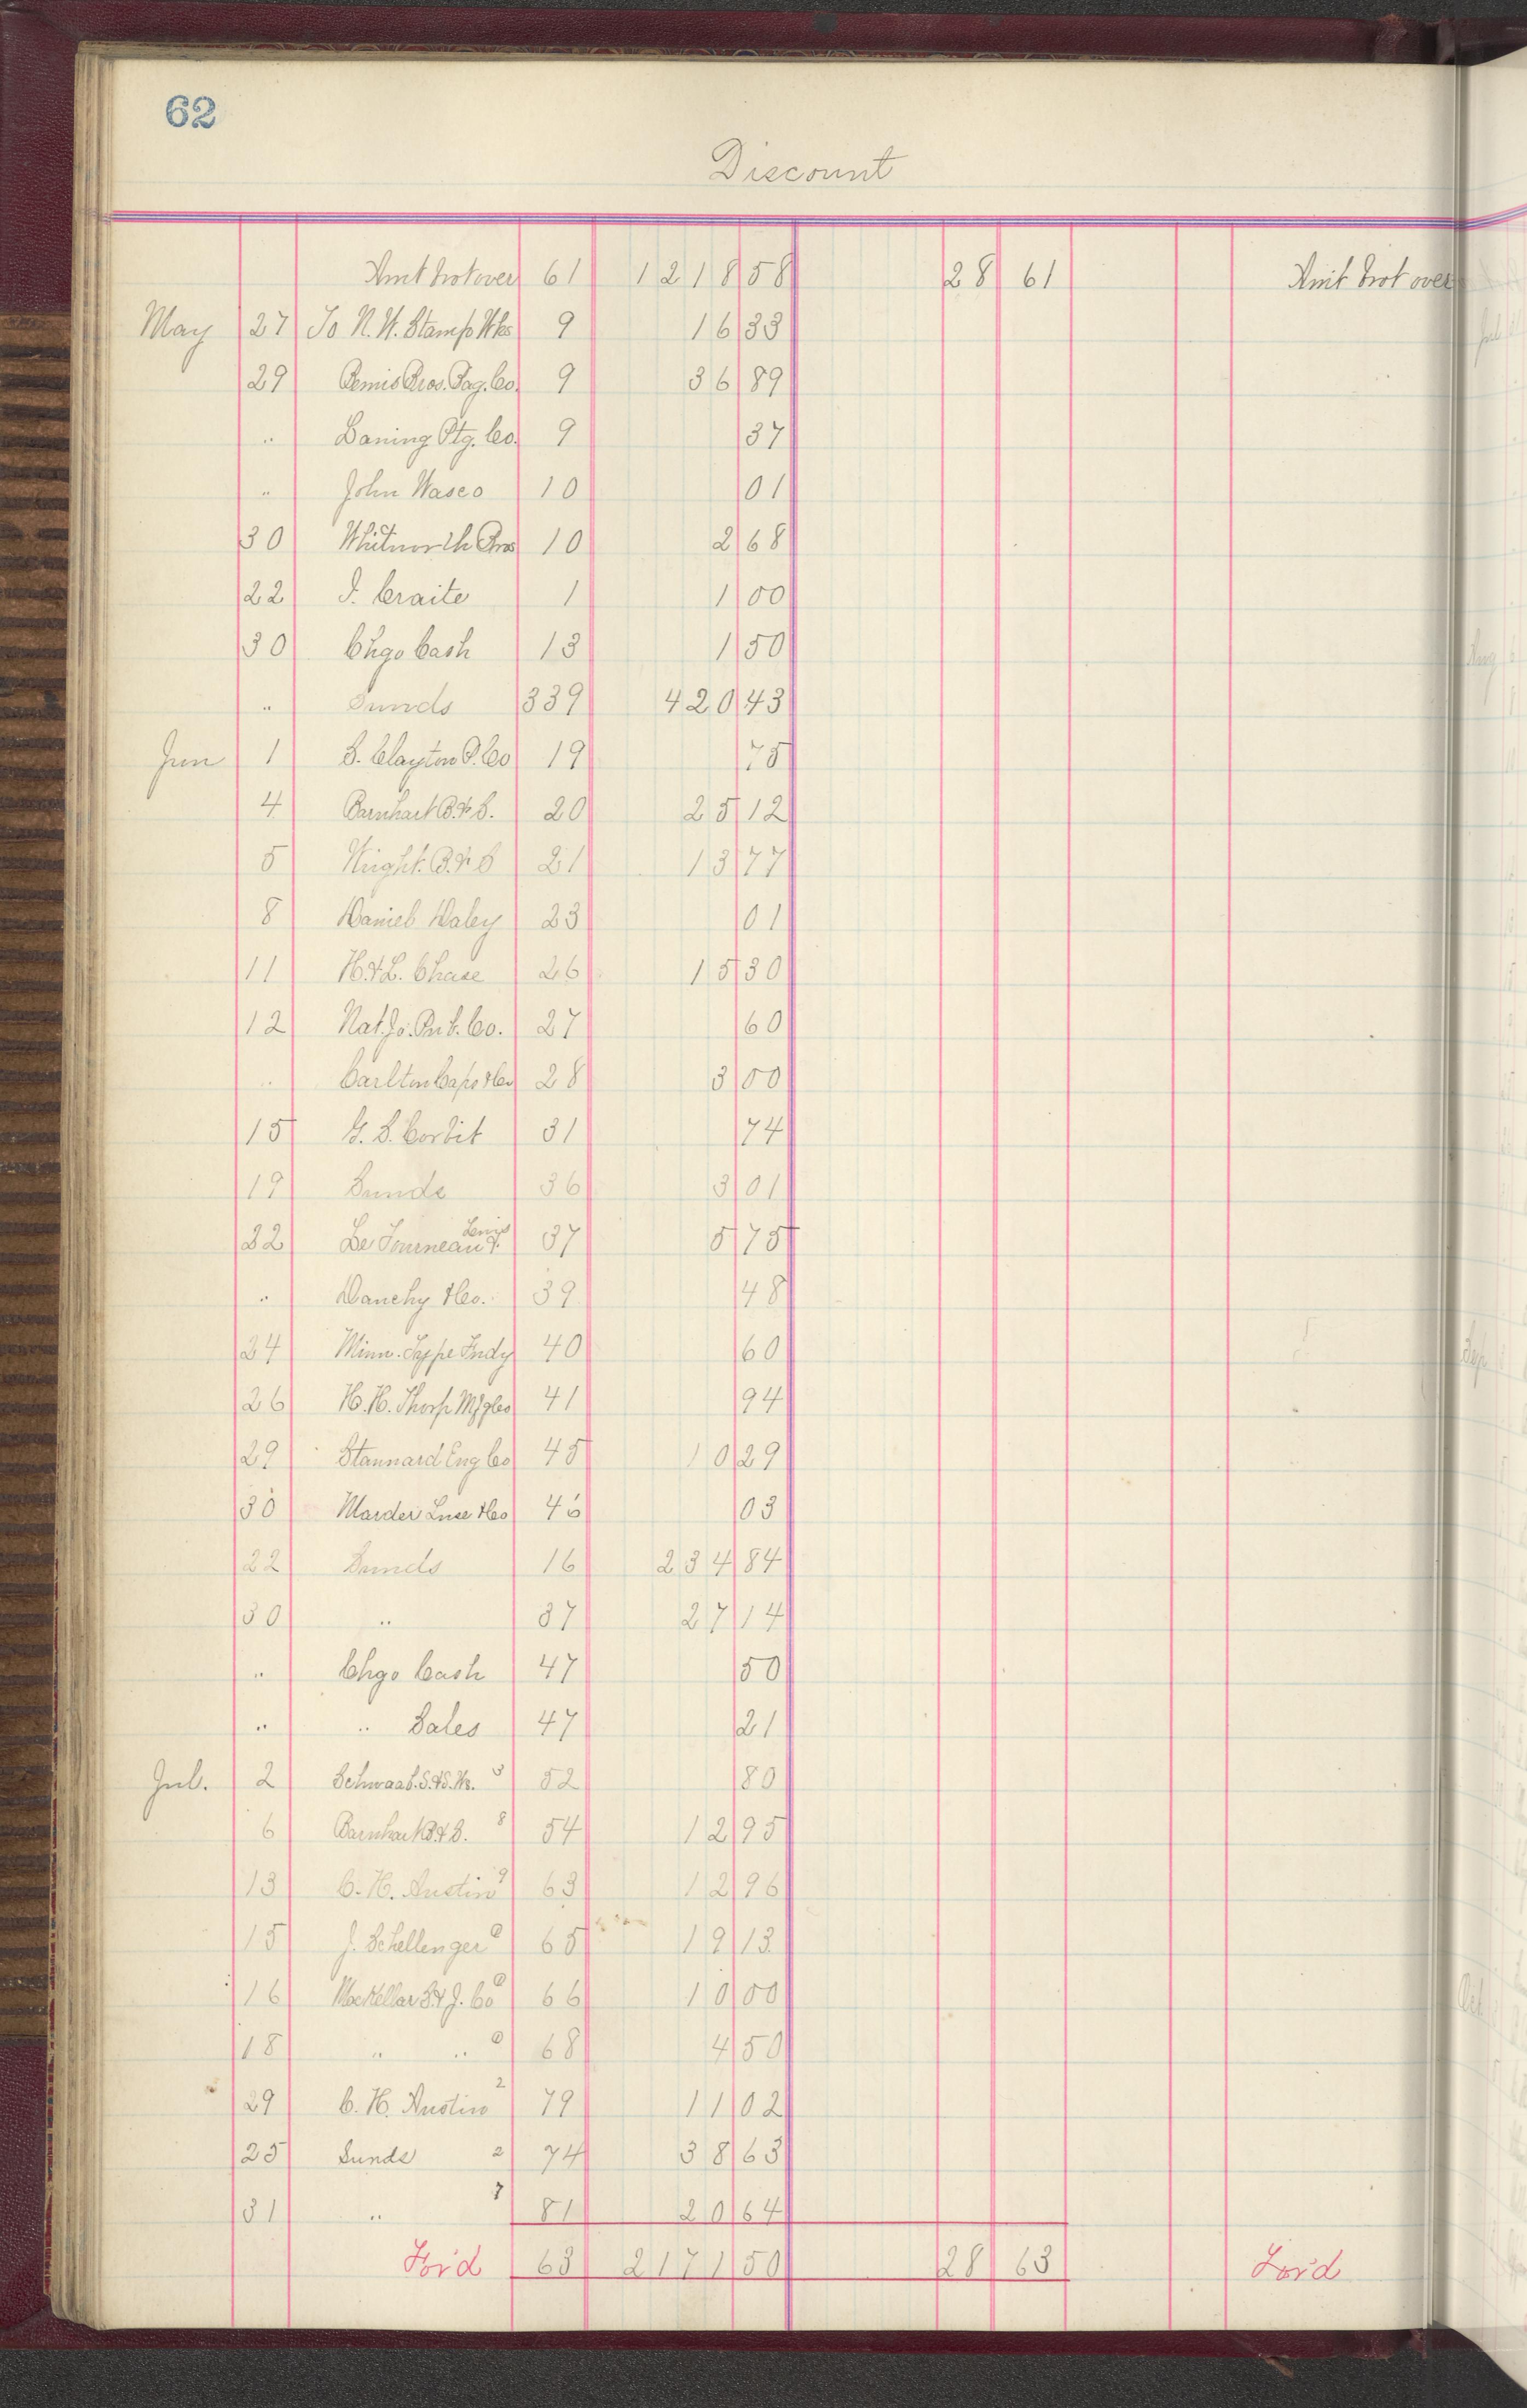 62
Discount
Amt brot over 61 1218 58 28 61 Amt brot over
May 27 To N. W. Stamp Wks 9 16 33
29 Bemis Bros. Bag. Co. 9 36 89
" Laning Ptg. Co. 9 37
" John Wasco 10 01
30 Whitworth Bros 10 2 68
22 I. Craite 1 1 00
30 Chgo Cash 13 1 50
" Sunds 339 420 43
Jun 1 S. Clayton P. Co 19 75
4 Barnhart B. & S. 20 25 12
5 Wright. B. & S 21 13 77
8 Daniel Daley 23 01
11 H. & L. Chase 26 15 30
12 Nat. Jo. Pub. Co. 27 60
" Carlton Caps &Co 28 3 00
15 G. S. Corbit 31 74
19 Sunds 36 3 01
22 Le Tourneau & Lewis 37 5 75
" Danchy &Co. 39 48
24 Minn. Type Fndy 40 60
26 H. H. Thorp Mfg Co 41 94
29 Stannard Eng Co 45 10 29
30 Marder Luse &Co 46 03
22 Sunds 16 234 84
30 " 37 27 14
" Chgo Cash 47 50
" " Sales 47 21
Jul. 2 Schwaab. S. & S. Co. 3 52 80
6 Barnhart B. & S. 8 54 12 95
13 C. H. Austin 9 63 12 96
15 J. Schellenger 65 19 13
16 MacKellar S. & J. Co 66 10 00
18 " " 68 4 50
29 C. H. Austin 2 79 11 02
25 Sunds 2 74 38 63
31 " 7 81 20 64
For'd 63 2171 50 28 63 For'd